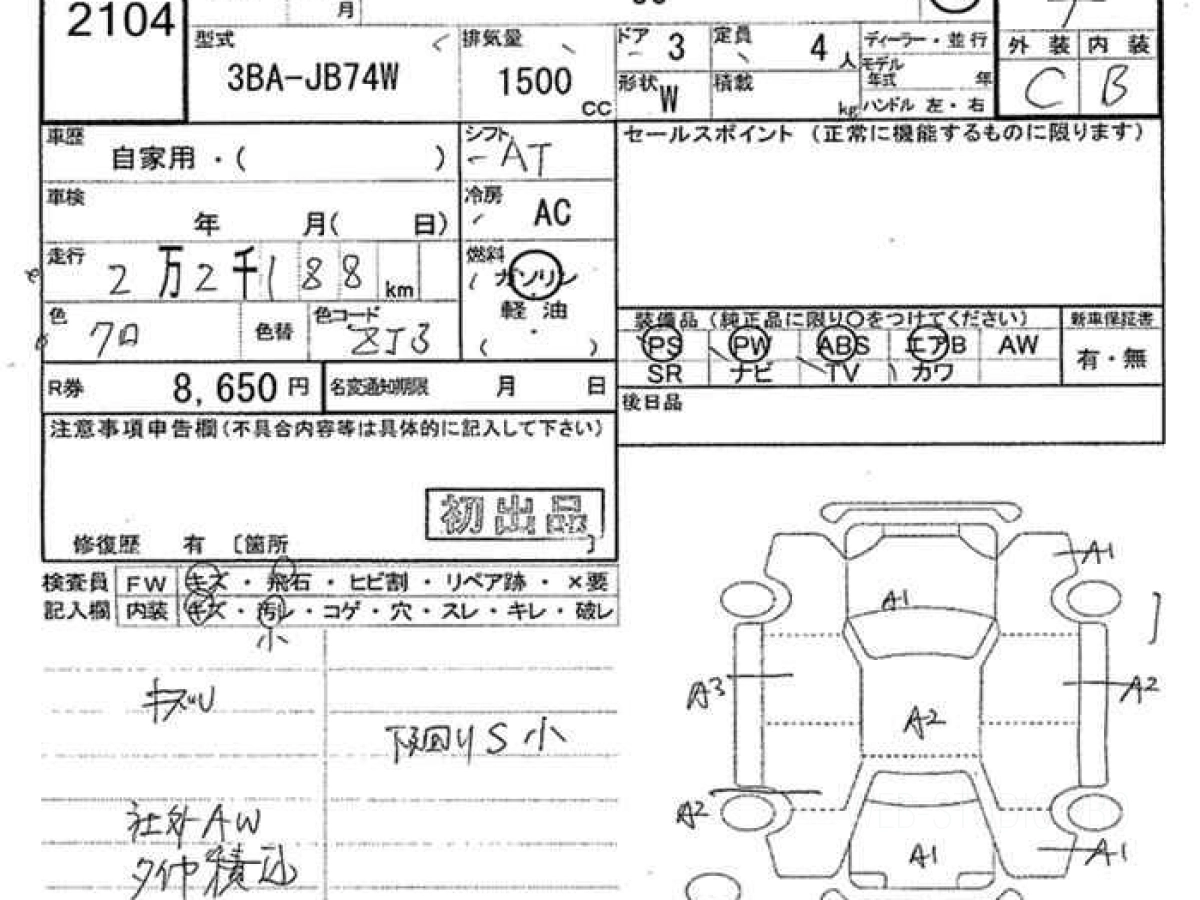 2104
月
型式
3BA-JB74W
排気量
1500
CC
ドア 3
定員 4 人
形状 W
積載 kg
ディーラー・並行
モデル年式 年
ハンドル 左・右
外装 内装
C B
車歴
自家用・( )
シフト
AT
セールスポイント (正常に機能するものに限ります)
車検
年 月( 日)
冷房
AC
走行
2万2千188 km
燃料
ガソリン
軽油
・
( )
色
クロ
色替
色コード
ZJ3
装備品 (純正品に限り〇をつけてください)
新車保証書
PS PW ABS エアB AW
SR ナビ TV カワ
有・無
R券
8,650円
名変通知期限 月 日
後日品
注意事項申告欄(不具合内容等は具体的に記入して下さい)
初出品
修復歴 有 〔箇所 〕
検査員 FW キズ・飛石・ヒビ割・リペア跡・×要
記入欄 内装 キズ・汚レ・コゲ・穴・スレ・キレ・破レ
小
下回りS小
社外AW
タイヤ積込
A1
A1
A3
A2
A2
A2
A1
A1